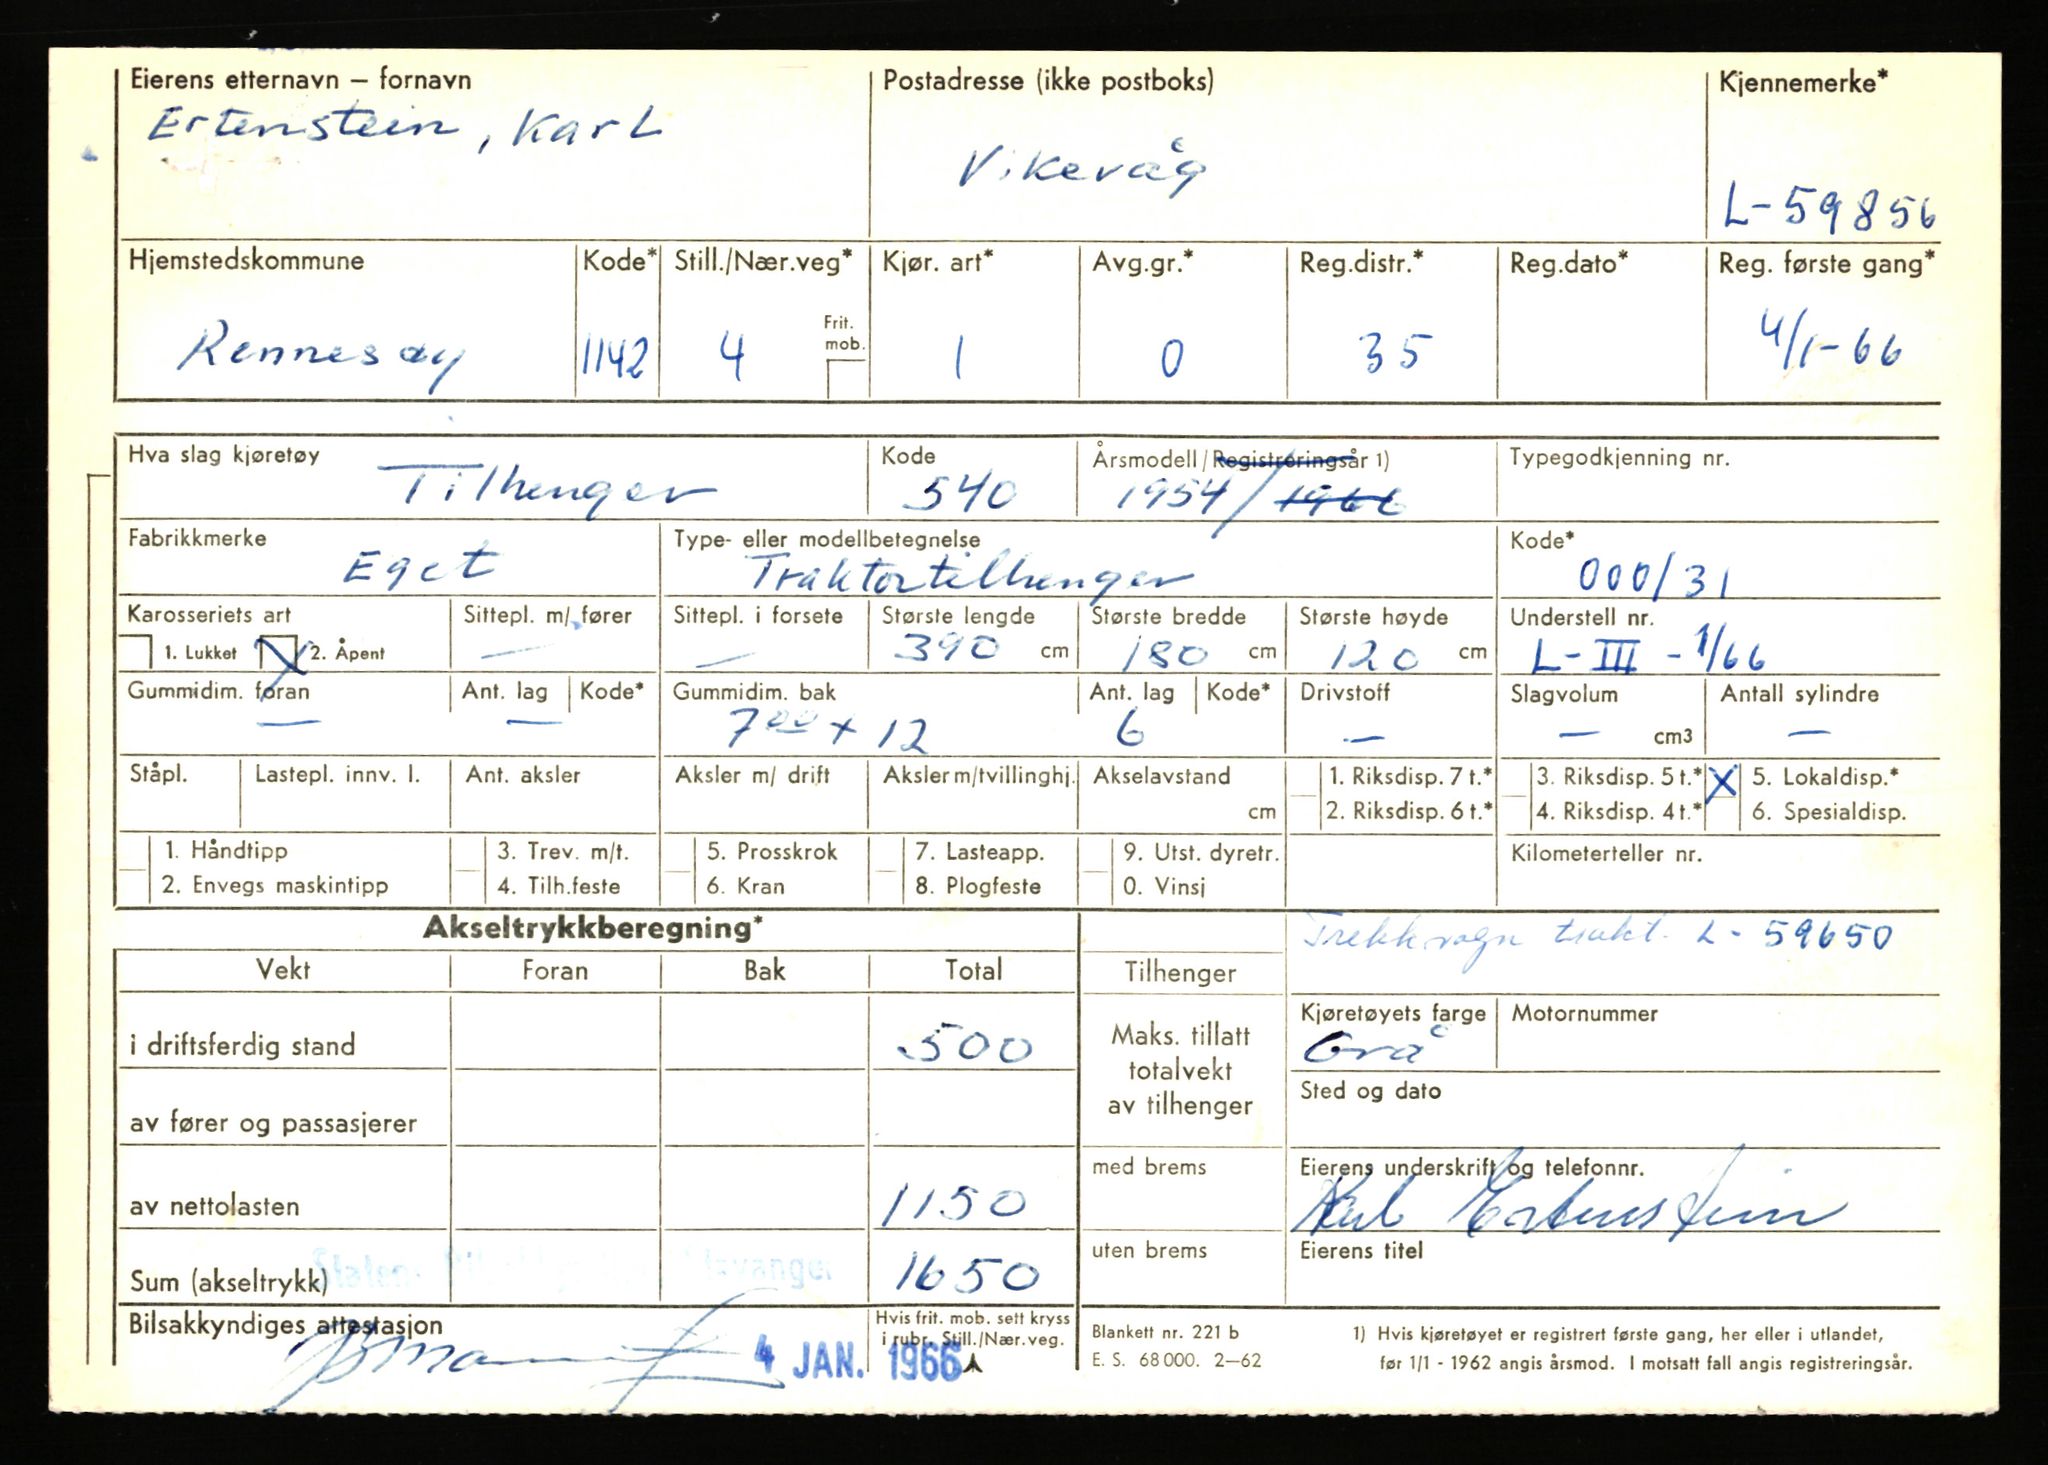 Eierens etternavn – fornavn Postadresse (ikke postboks) Kjennemerke*
Ertenstein, Karl
Vikevåg
L-59856
Hjemstedskommune Kode* Still./Nær.veg* Kjør. art* Avg.gr.* Reg.distr.* Reg.dato* Reg. første gang*
Frit. mob.
Rennesøy 1142 4 1 0 35 4/1-66
Hva slag kjøretøy Kode Årsmodell/Registreringsår 1) Typegodkjenning nr.
Tilhenger 540 1954/1966
Fabrikkmerke Type- eller modellbetegnelse Kode*
Eget Traktortilhenger 000/31
Karosseriets art Sittepl. m/ fører Sittepl. i forsete Største lengde Største bredde Største høyde Understell nr.
1. Lukket X 2. Åpent — — 390 cm 180 cm 120 cm L-III-1/66
Gummidim. foran Ant. lag Kode* Gummidim. bak Ant. lag Kode* Drivstoff Slagvolum Antall sylindre
— — 7.00 x 12 6 — — cm3 —
Ståpl. Lastepl. innv. l. Ant. aksler Aksler m/ drift Aksler m/tvillinghj. Akselavstand 1. Riksdisp. 7 t.* 3. Riksdisp. 5 t.* X 5. Lokaldisp.*
cm 2. Riksdisp. 6 t.* 4. Riksdisp. 4 t.* 6. Spesialdisp.
1. Håndtipp 3. Trev. m/t. 5. Prosskrok 7. Lasteapp. 9. Utst. dyretr. Kilometerteller nr.
2. Envegs maskintipp 4. Tilh.feste 6. Kran 8. Plogfeste 0. Vinsj
Akseltrykkberegning*
Trekkvogn trakt. L-59650
Vekt Foran Bak Total Tilhenger
Kjøretøyets farge Motornummer
i driftsferdig stand 500 Maks. tillatt totalvekt av tilhenger Grå
Sted og dato
av fører og passasjerer
med brems Eierens underskrift og telefonnr.
av nettolasten 1150 Karl Ertenstein
uten brems Eierens titel
Sum (akseltrykk) 1650
Bilsakkyndiges attestasjon
Hvis frit. mob. sett kryss
i rubr. Still./Nær.veg.
4 JAN. 1966
Blankett nr. 221 b
E. S. 68 000. 2–62
1) Hvis kjøretøyet er registrert første gang, her eller i utlandet,
før 1/1 - 1962 angis årsmod. I motsatt fall angis registreringsår.